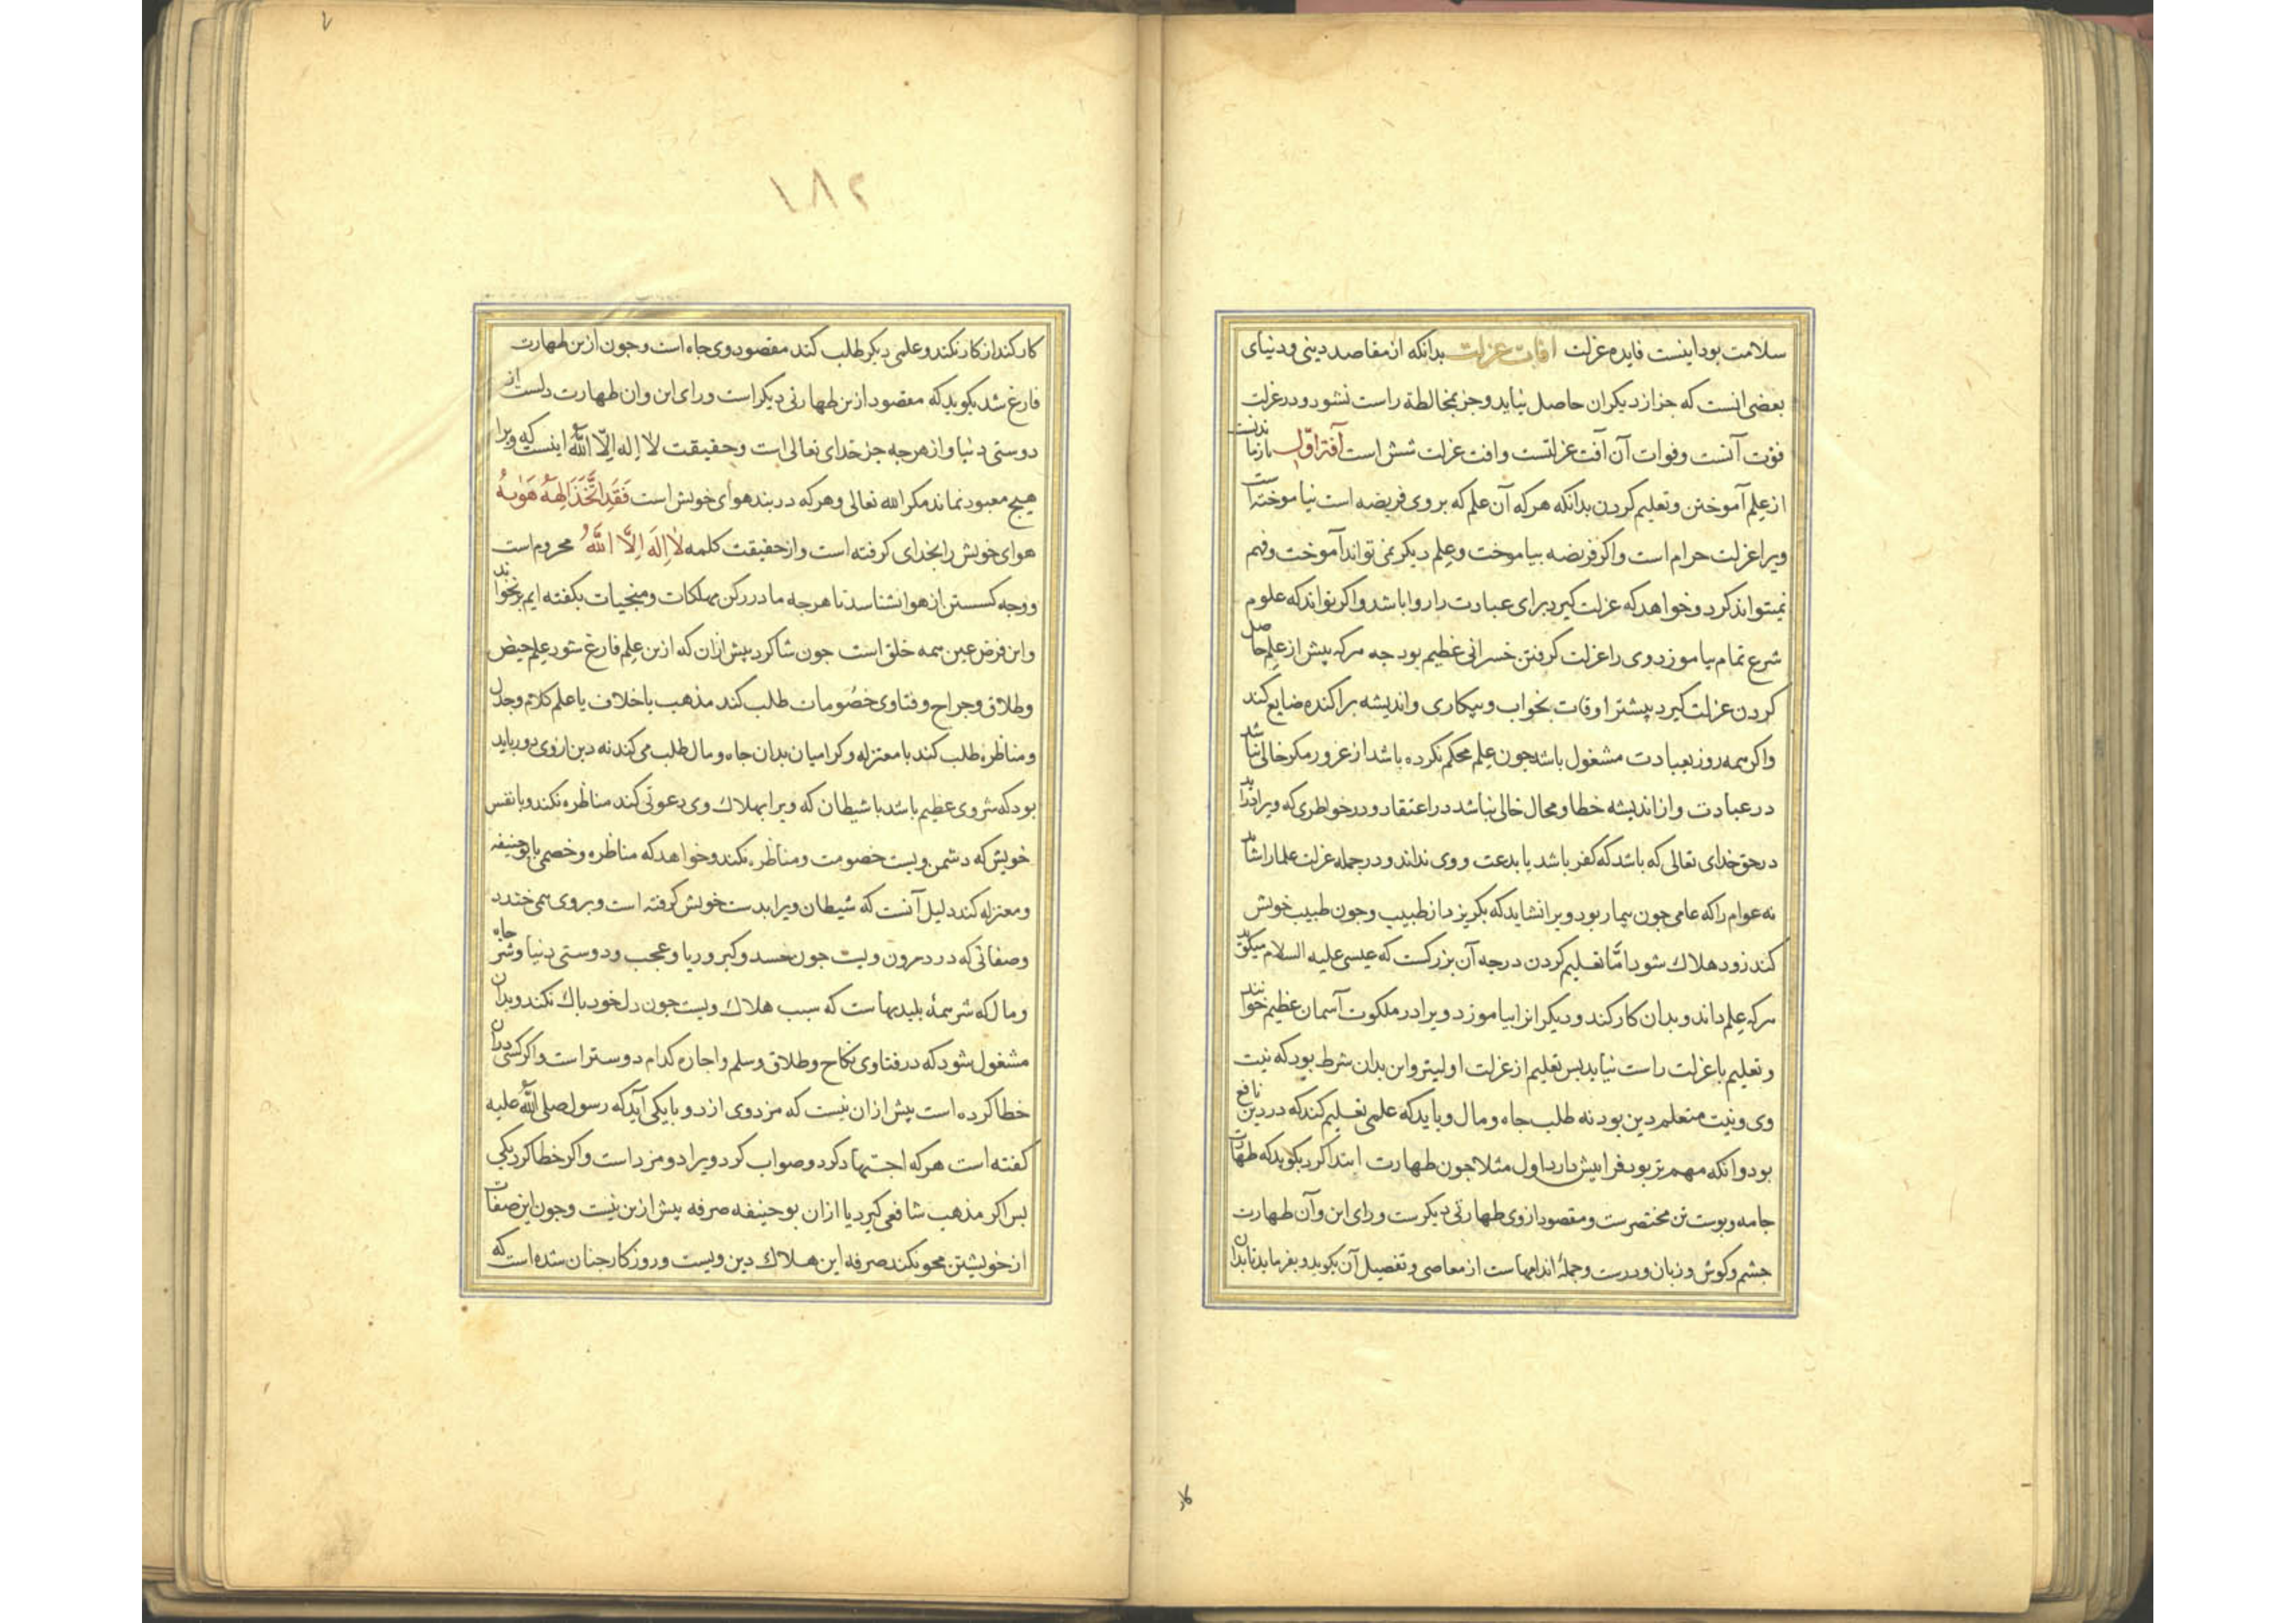 سلامت بود اینست فایده عزلت افات عزلت بدانکه از مقاصد دینی و دنیای
بعضی انست که جز از دیکران حاصل نیاید و جز بمخالطة راست نشود و در عزلت
فوت آنست و فوات آن آفت عزلتست و افت عزلت شش است آفت اول بازماندنست
از علم آموختن و تعلیم کردن بدانکه هرکه آن علم که بر وی فریضه است نیاموخته است
ویرا عزلت حرام است و اکر فریضه بیاموخت و علم دیکر نمی تواند آموخت و فهم
نمیتواند کرد و خواهد که عزلت کیرد برای عبادت را روا باشد و اکر تواند که علوم
شرع تمام بیاموزد وی را عزلت کرفتن خسرانی عظیم بود جه هرکه بیش از علم حاصل
کردن عزلت کیرد بیشتر اوقات بخواب و بیکاری و اندیشه براکنده ضایع کند
واکر همه روز بعبادت مشغول باشد جون علم محکم نکرده باشد از غرور مکر خالی نباشد
در عبادت و از اندیشه خطا و محال خالی نباشد در اعتقاد و در خواطری که ویرا درآید
در حق خدای تعالی که باشد که کفر باشد یا بدعت و وی نداند و در جمله عزلت علما را شاید
نه عوام را که عامی جون بیمار بود ویرا نشاید که بکریزد از طبیب و جون طبیب خویش
کند زود هلاک شود امّا تعلیم کردن درجه آن بزرکست که عیسی علیه السلام میکوید
هرکه علم داند و بدان کار کند و دیکرانرا بیاموزد ویرا در ملکوت آسمان عظیم خوانند
و تعلیم با عزلت راست نیاید بس تعلیم از عزلت اولیتر و این بدان شرط بود که نیت
وی و نیت متعلم دین بود نه طلب جاه و مال و باید که علمی تعلیم کند که در دین نافع
بود و انکه مهم تر بود فرا بیش دارد اول مثلا جون طهارت ابتدا کرد بکوید که طهارت
جامه و بوست تن مختصرست و مقصود از وی طهارتی دیکرست ورای این و آن طهارت
جشم و کوش و زبان و درست و جملهٔ اندامهاست از معاصی و تفصیل آن بکوید و بفرماید تا بدان
کار
١٨٢
کار کند از کار نکند و علمی دیکر طلب کند مقصود وی جاه است و جون ازین طهارت
فارغ شد بکوید که مقصود ازین طهارتی دیکر است ورای این و ان طهارت دلست از
دوستی دنیا و از هرجه جز خدای تعالی است و حقیقت لا اله الّا الله اینست که ویرا
هیچ معبود نماند مکر الله تعالی و هرکه در بند هوای خویش است فَقَدِ اتَّخَذَ اِلٰهَهُ هَوٰیهُ
هوای خویش را بخدای کرفته است و از حقیقت کلمه لا اِلَه اِلَّا اللهُ محروم است
و وجه کسستن از هوا نشناسد تا هرجه ما در رکن مهلکات و منجیات بکفته ایم برنخواند
و این فرض عین همه خلق است جون شاکرد بیش از ان که ازین علم فارغ شود علم حیض
و طلاق و جراح و فتاوی خصومات طلب کند مذهب با خلاف یا علم کلام و جدل
و مناظره طلب کند با معتزله و کرامیان بدان جاه و مال طلب می کند نه دین از وی دور باید
بود که شر وی عظیم باشد با شیطان که ویرا بهلاک وی دعوتی کند مناظره نکند و با نفس
خویش که دشمن ویست خصومت و مناظره نکند و خواهد که مناظره و خصمی با بوحنیفه
و معتزله کند دلیل آنست که شیطان ویرا بدست خویش کرفته است و بر وی همی خندد
و صفاتی که در درون ویست جون حسد و کبر و ریا و عجب و دوستی دنیا و شر جاه
و مال که شر همهٔ بلیدیهاست که سبب هلاک ویست جون دل خود باک نکند و بدان
مشغول شود که در فتاوی نکاح و طلاق و سلم و اجاره کدام دوستر است و اکر کسی دران
خطا کرده است بیش از ان نیست که مزد وی از دو با یکی آید که رسول صلی الله علیه
کفته است هرکه اجتهاد کرد و صواب کرد ویرا دو مزد است و اکر خطا کرد یکی
بس اکر مذهب شافعی کیرد یا ازان بوحنیفه صرفه بیش ازین نیست و جون این صفات
از خویشتن محو نکند صرفه این هلاک دین ویست و روزکار جنان شده است که